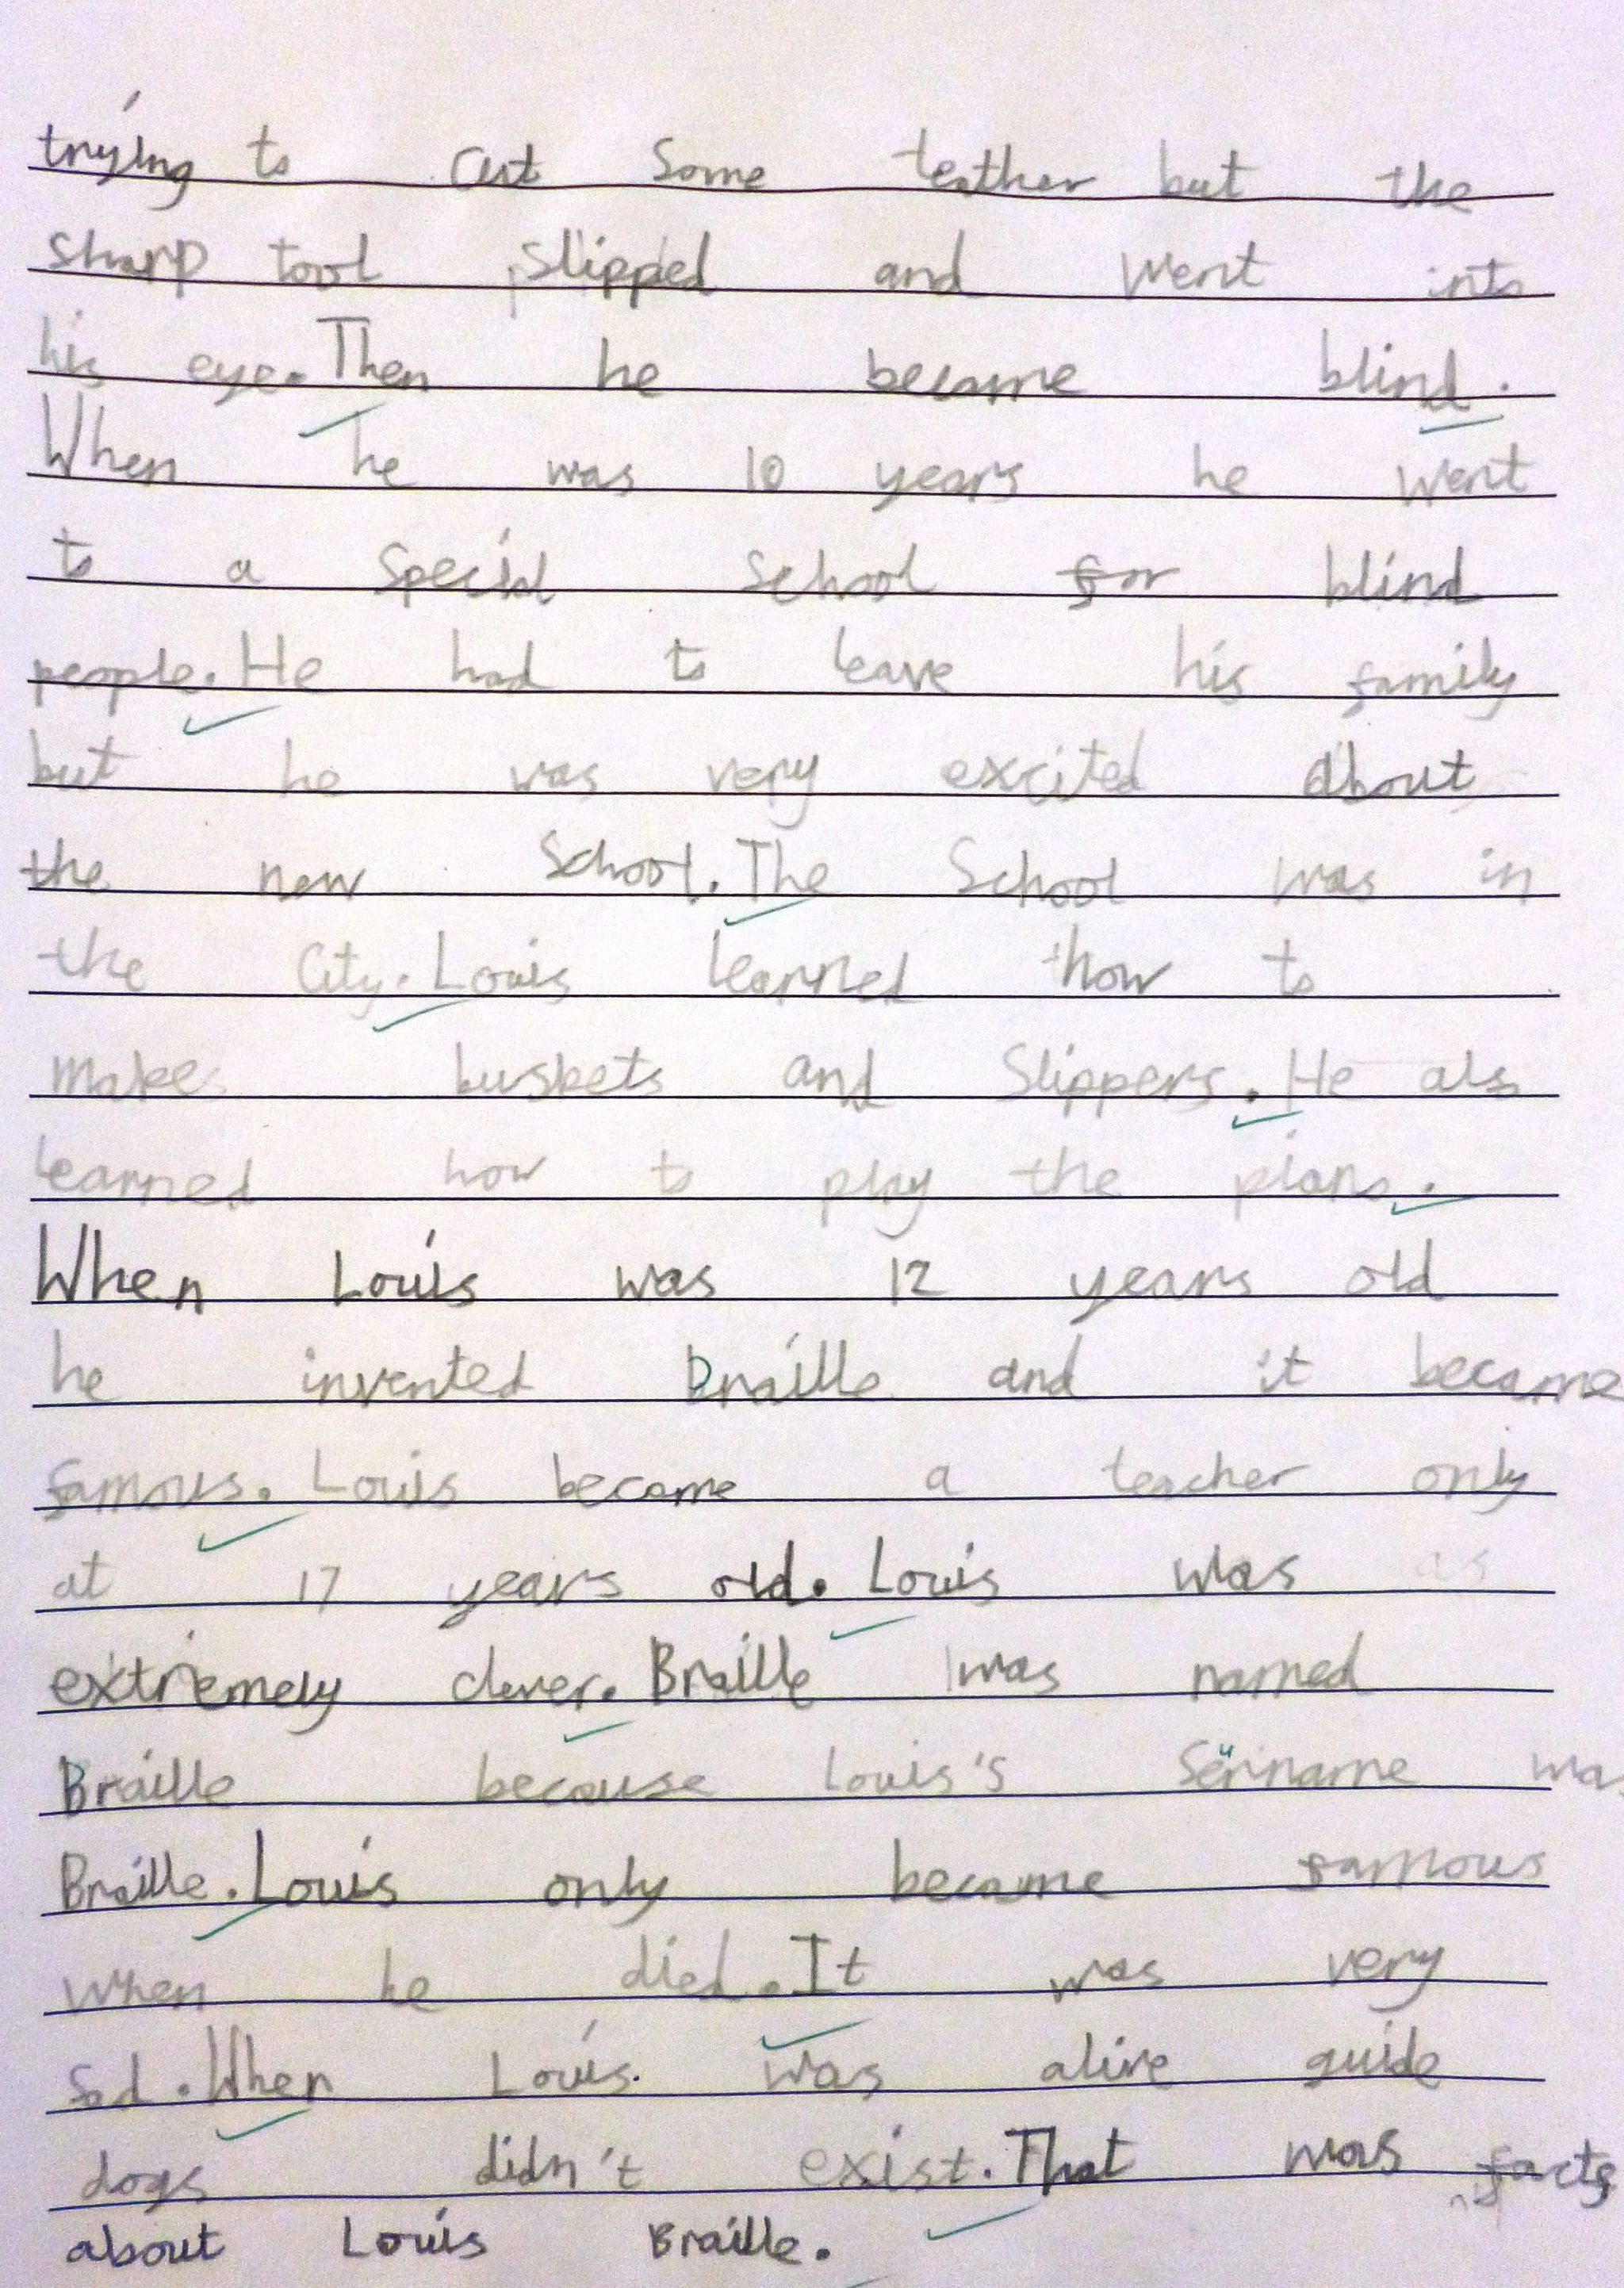 trying to cut some leather but the
sharp tool slipped and went into
his eye. Then he became blind.
When he was 10 years he went
to a special school for blind
people. He had to leave his family
but he was very excited about
the new school. The School was in
the City. Louis learned how to
make buskets and Slippers. He also
learned how to play the piano.
When Louis was 12 years old
he invented Braille and it became
famous. Louis became a teacher only
at 17 years old. Louis was as
extremely clever. Braille was named
Braille because Louis's was
Braille. Louis only became famous
when he died. It was very
sad. When Louis was alive guide
dogs didn't exist. That was facts
about Louis Braille.